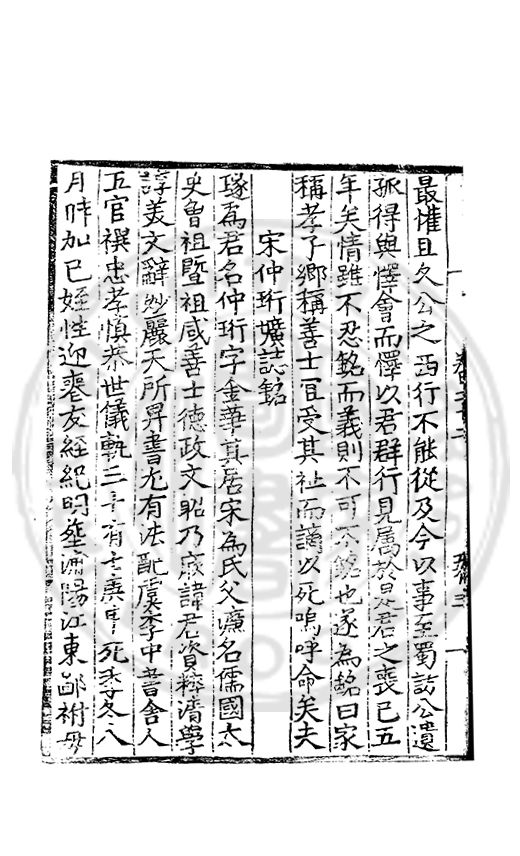 最惟且久公之西行不能從及今以事至蜀訪公遺
孤得與懌會而懌以君群行見屬於是君之喪已五
年矣情雖不忍銘而義則不可不銘也遂為銘曰家
稱孝子鄉稱善士宜受其祉而謫以死嗚呼命矣夫
宋仲珩壙誌銘
璲爲君名仲珩字金華其居宋為氏父濂名儒國太
史曾祖暨祖咸善士德政文昭乃族諱君資粹清學
諄美文辭妙麗天所畀書尤有法配虞李中書舍人
五官禩忠孝慎恭世儀軌三十有七庚申死季冬八
月時加巳姪性迎喪友經紀明塟濟陽江東鄙祔母